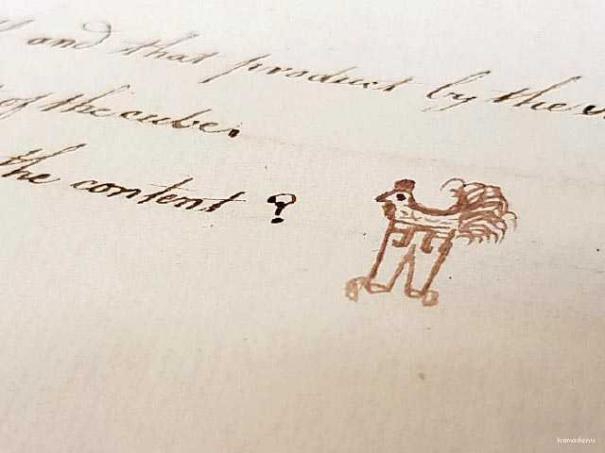 and that product by the
of the cube.
the content ?